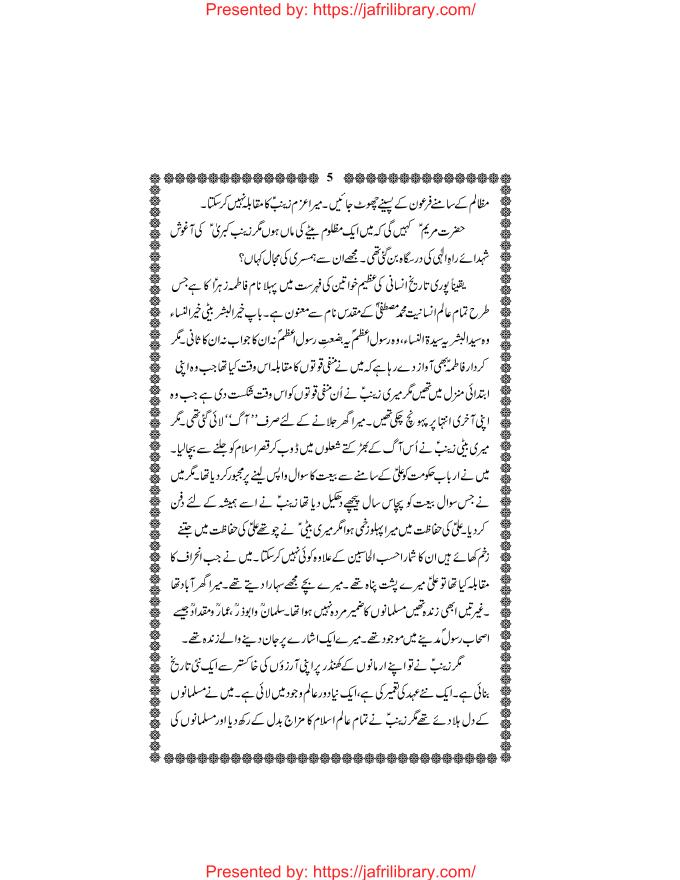 Presented by: https://jafrilibrary.com/
5
مظالم کے سامنے فرعون کے پسینے چھوٹ جائیں۔ میرا عزم زینبؑ کا مقابلہ نہیں کرسکتا۔
حضرت مریمؑ کہیں گی کہ میں ایک مظلوم بیٹے کی ماں ہوں مگر زینب کبریٰؑ کی آغوش
شہدائے راہ الٰہی کی درسگاہ بن گئی تھی۔ مجھے ان سے ہمسری کی مجال کہاں؟
یقیناً پوری تاریخ انسانی کی عظیم خواتین کی فہرست میں پہلا نام فاطمہ زہراؑ کا ہے جس
طرح تمام عالم انسانیت محمد مصطفیٰؐ کے مقدس نام سے معنون ہے۔ باپ خیرالبشر بیٹی خیرالنساء
وہ سیدالبشر یہ سیدۃ النساء، وہ رسول اعظمؐ یہ بضعتِ رسول اعظمؐ نہ ان کا جواب نہ ان کا ثانی۔ مگر
کردار فاطمہؑ بھی آواز دے رہا ہے کہ میں نے منفی قوتوں کا مقابلہ اس وقت کیا تھا جب وہ اپنی
ابتدائی منزل میں تھیں مگر میری زینبؑ نے اُن منفی قوتوں کو اس وقت شکست دی ہے جب وہ
اپنی آخری انتہا پر پہونچ چکی تھیں۔ میرا گھر جلانے کے لئے صرف ’’آگ‘‘ لائی گئی تھی۔ مگر
میری بیٹی زینبؑ نے اُس آگ کے بھڑکتے شعلوں میں ڈوب کر قصر اسلام کو جلنے سے بچالیا۔
میں نے ارباب حکومت کو علیؑ کے سامنے سے بیعت کا سوال واپس لینے پر مجبور کردیا تھا۔ مگر میں
نے جس سوال بیعت کو پچاس سال پیچھے دھکیل دیا تھا زینبؑ نے اسے ہمیشہ کے لئے دفن
کردیا۔ علیؑ کی حفاظت میں میرا پہلو زخمی ہوا مگر میری بیٹیؑ نے چوتھے علیؑ کی حفاظت میں جتنے
زخم کھائے ہیں ان کا شمار احسب الحاسبین کے علاوہ کوئی نہیں کرسکتا۔ میں نے جب انحراف کا
مقابلہ کیا تھا تو علیؑ میرے پشت پناہ تھے۔ میرے بچے مجھے سہارا دیتے تھے۔ میرا گھر آباد تھا
۔غیرتیں ابھی زندہ تھیں مسلمانوں کا ضمیر مردہ نہیں ہوا تھا۔ سلمانؓ وابوذرؓ، عمارؓ ومقدادؓ جیسے
اصحاب رسولؐ مدینے میں موجود تھے۔ میرے ایک اشارے پر جان دینے والے زندہ تھے۔
مگر زینبؑ نے تو اپنے ارمانوں کے کھنڈر پر اپنی آرزؤں کی خاکستر سے ایک نئی تاریخ
بنائی ہے۔ ایک نئے عہد کی تعمیر کی ہے، ایک نیا دور عالم وجود میں لائی ہے۔ میں نے مسلمانوں
کے دل ہلا دئے تھے مگر زینبؑ نے تمام عالم اسلام کا مزاج بدل کے رکھ دیا اور مسلمانوں کی
Presented by: https://jafrilibrary.com/